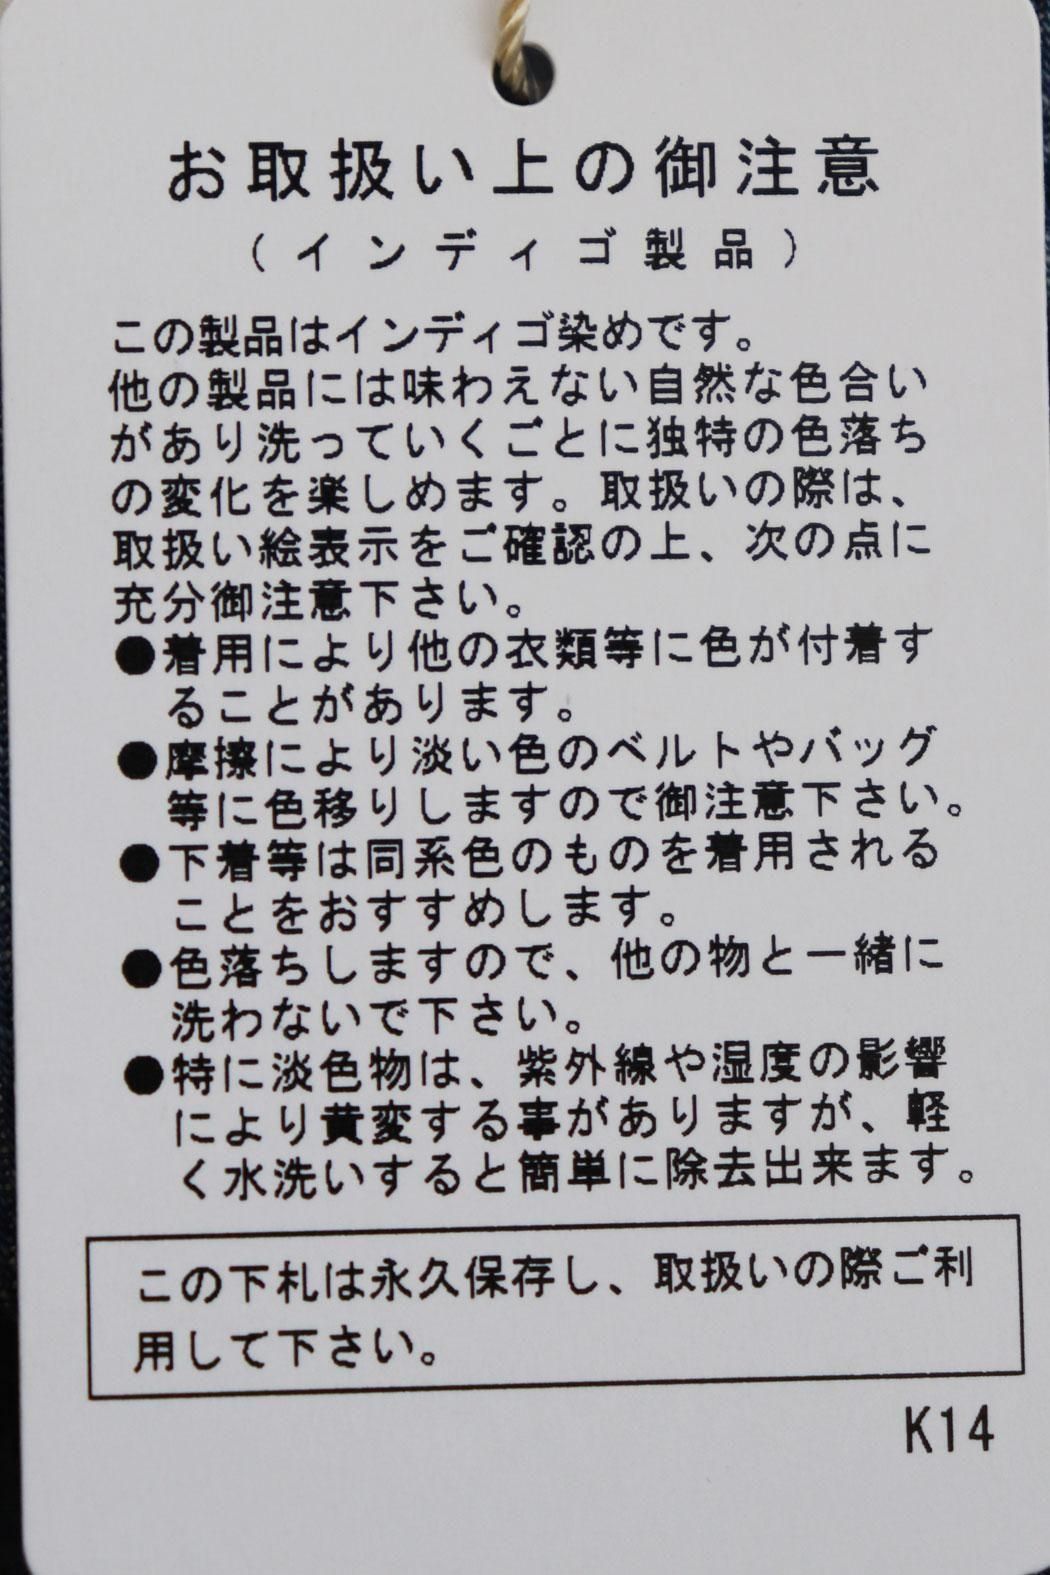 お取扱い上の御注意
(インディゴ製品)
この製品はインディゴ染めです。
他の製品には味わえない自然な色合い
があり洗っていくごとに独特の色落ち
の変化を楽しめます。取扱いの際は、
取扱い絵表示をご確認の上、次の点に
充分御注意下さい。
●着用により他の衣類等に色が付着す
ることがあります。
●摩擦により淡い色のベルトやバッグ
等に色移りしますので御注意下さい。
●下着等は同系色のものを着用される
ことをおすすめします。
●色落ちしますので、他の物と一緒に
洗わないで下さい。
●特に淡色物は、紫外線や湿度の影響
により黄変する事がありますが、軽
く水洗いすると簡単に除去出来ます。
この下札は永久保存し、取扱いの際ご利
用して下さい。
K14